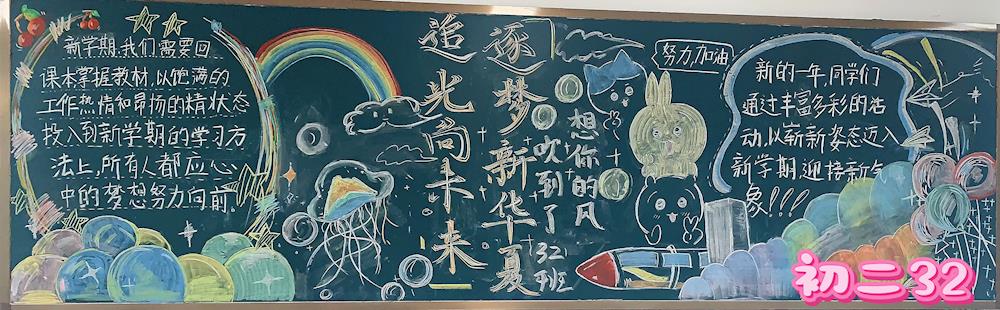 新学期,我们需要回
课本掌握教材,以饱满的
工作热情和昂扬的精状态
投入到新学期的学习方
法上,所有人都应心
中的梦想努力向前.
追光向未来
逐梦新华夏
想你的风
吹到了
32班
努力,加油
新的一年,同学们
通过丰富多彩的活
动,以崭新姿态迈入
新学期,迎接新气
象!!!
初二32